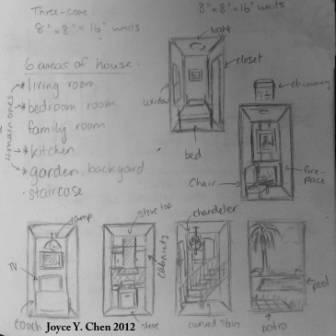 Three-core
8" x 8" x 16" units
8" x 8" x 16" units
6 areas of house
4 main ones
*living room
*bedroom room
family room
*kitchen
*garden, backyard
staircase
closet
window
bed
chimney
Chair
fire-
place
lamp
TV
couch
stove top
cabinets
stove
chandelier
curved stairs
pool
patio
Joyce Y. Chen 2012